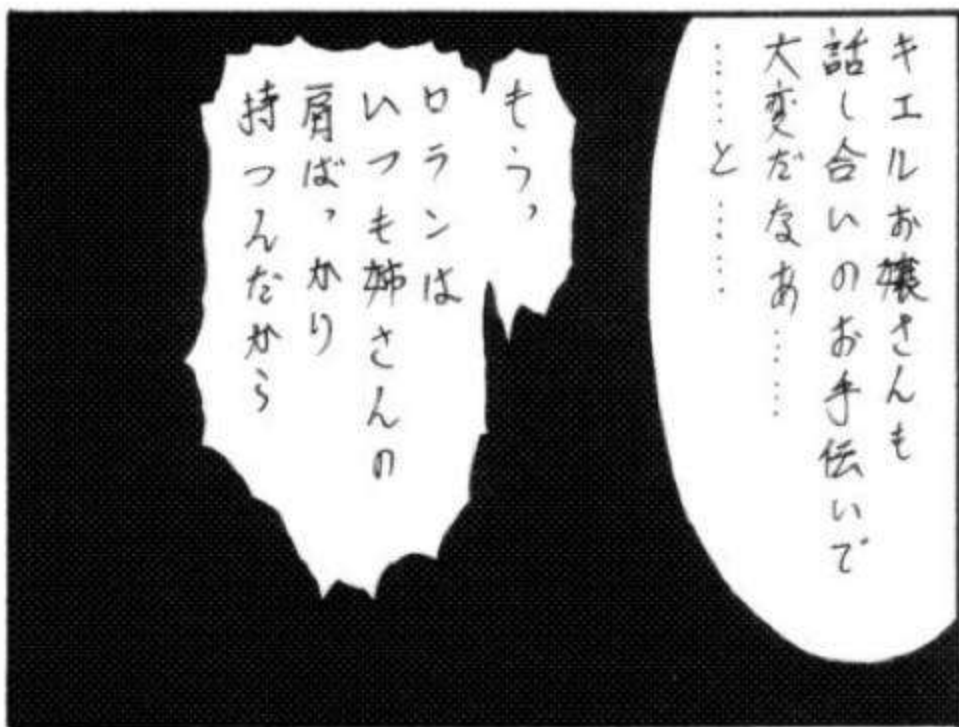 キエルお嬢さんも
話し合いのお手伝いで
大変だなあ……
……と……
もうっ
ロランは
いつも姉さんの
肩ばっかり
持つんだから